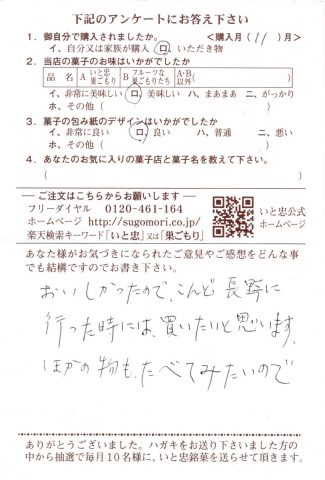 下記のアンケートにお答え下さい
1. 御自分で購入されましたか。 <購入月( 11 )月>
イ、自分又は家族が購入 ロ、いただき物
2. 当店の菓子のお味はいかがでしたか
品 名 A いと忠巣ごもり B フルーツな巣ごもりたち A・B以外( )
イ、非常に美味しい ロ、美味しい ハ、まあまあ ニ、がっかり
ホ、その他( )
3. 菓子の包み紙のデザインはいかがでしたか
イ、非常に良い ロ、良い ハ、普通 ニ、悪い
ホ、その他( )
4. あなたのお気に入りの菓子店と菓子名を教えて下さい。
( )
ご注文はこちらからお願いします
フリーダイヤル 0120-461-164
ホームページ http://sugomori.co.jp/
楽天検索キーワード「いと忠」又は「巣ごもり」
いと忠公式
ホームページ
あなた様がお気づきになられたご意見やご感想をどんな事
でも結構ですのでお書き下さい。
おいしかったので、こんど長野に
行った時には、買いたいと思います、
ほかの物も、たべてみたいので
ありがとうございました。ハガキをお送り下さいました方の
中から抽選で毎月10名様に、いと忠銘菓を送らせて頂きます。